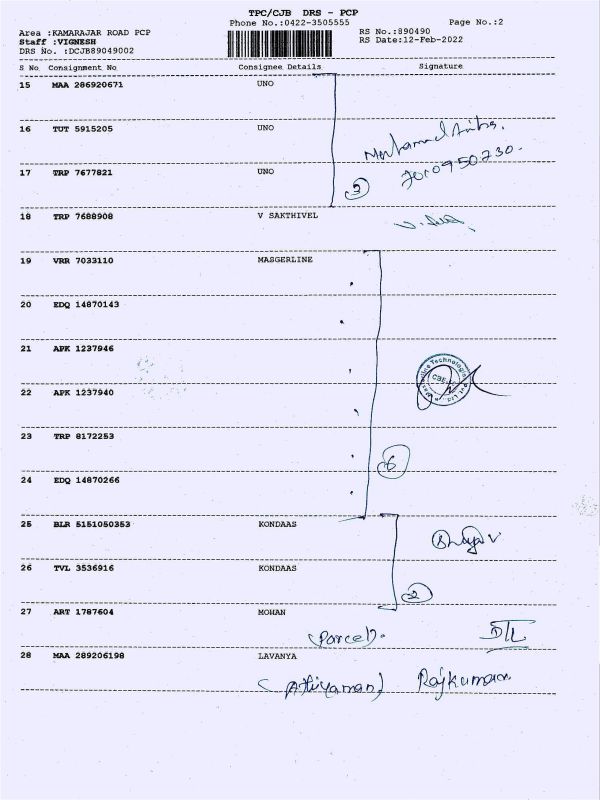 TPC/CJB DRS - PCP
Phone No.:0422-3505555
Page No.:2
Area :KAMARAJAR ROAD PCP
RS No.:890490
Staff :VIGNESH
RS Date:12-Feb-2022
DRS No. :DCJB89049002
S No Consignment No Consignee Details Signature
15 MAA 286920671 UNO
16 TUT 5915205 UNO
17 TRP 7677821 UNO
3
18 TRP 7688908 V SAKTHIVEL
19 VRR 7033110 MASGERLINE
20 EDQ 14870143
21 APK 1237946
22 APK 1237940
CBE
23 TRP 8172253
6
24 EDQ 14870266
25 BLR 5151050353 KONDAAS
26 TVL 3536916 KONDAAS
2
27 ART 1787604 MOHAN
(Parcel).
28 MAA 289206198 LAVANYA
(Athiyaman) Rajkumar